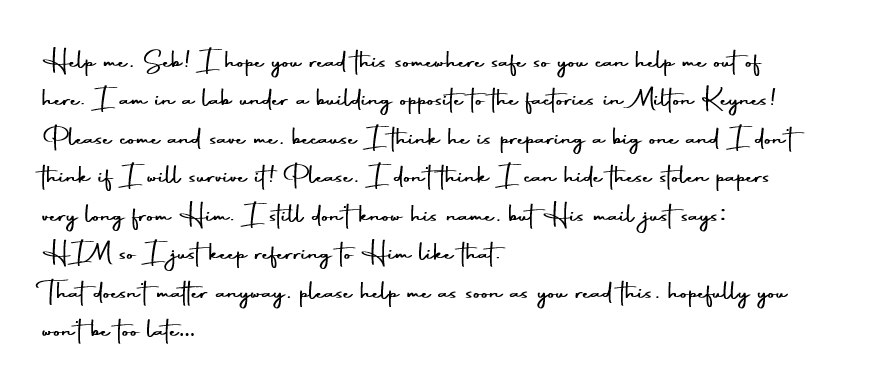 Help me. Seb! I hope you read this somewhere safe so you can help me out of
here. I am in a lab under a building opposite to the factories in Milton Keynes!
Please come and save me. because I think he is preparing a big one and I don't
think if I will survive it! Please. I don't think I can hide these stolen papers
very long from Him. I still don't know his name. but His mail just says:
HIM so I just keep referring to Him like that.
That doesn't matter anyway. please help me as soon as you read this. hopefully you
won't be too late...